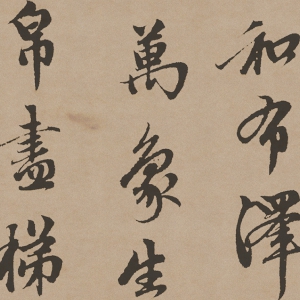 和布澤
萬象生
帛盡梯